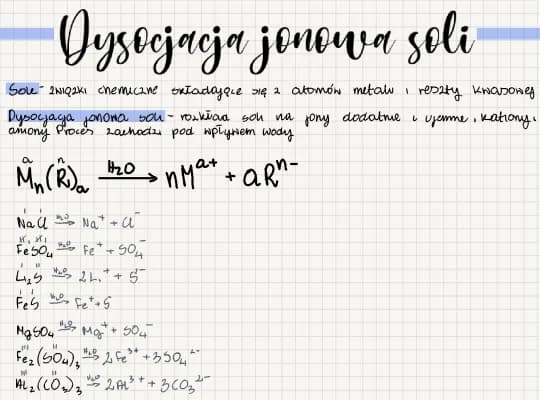 Dysocjacja jonowa soli
Sole - związki chemiczne składające się z atomów metalu i reszty kwasowej
Dysocjacja jonowa soli - rozkład soli na jony dodatnie i ujemne, kationy i
aniony Proces zachodzi pod wpływem wody
a n
Mₙ(R)ₐ H₂O→ nMᵃ⁺ + aRⁿ⁻
I I
NaCl H₂O→ Na⁺ + Cl⁻
FeSO₄ H₂O→ Fe⁺ + SO₄⁻
I II
Li₂S H₂O→ 2Li⁺ + S⁻
FeS H₂O→ Fe⁺ + S
MgSO₄ H₂O→ Mg⁺ + SO₄⁻
III II
Fe₂(SO₄)₃ H₂O→ 2Fe³⁺ + 3SO₄²⁻
III II
Al₂(CO₃)₃ H₂O→ 2Al³⁺ + 3CO₃²⁻